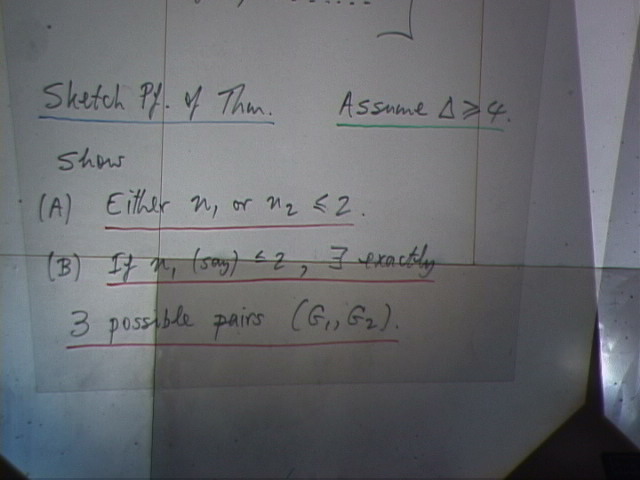 Sketch Pf. of Thm. Assume Δ ≥ 4.
Show
(A) Either n₁ or n₂ ≤ 2.
(B) If n₁ (say) ≤ 2, ∃ exactly
3 possible pairs (G₁, G₂).